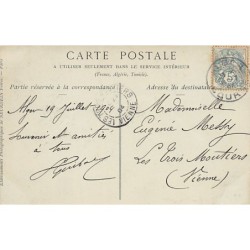 CARTE POSTALE
A UTILISER SEULEMENT DANS LE SERVICE INTÉRIEUR
(France, Algérie, Tunisie)
Partie réservée à la correspondance
Adresse du destinataire
Alger 19 Juillet 1904
Souvenir et amitiés
à tous
Mademoiselle
Eugénie Messy
Les Trois Moutiers
(Vienne)
VIENNE
5